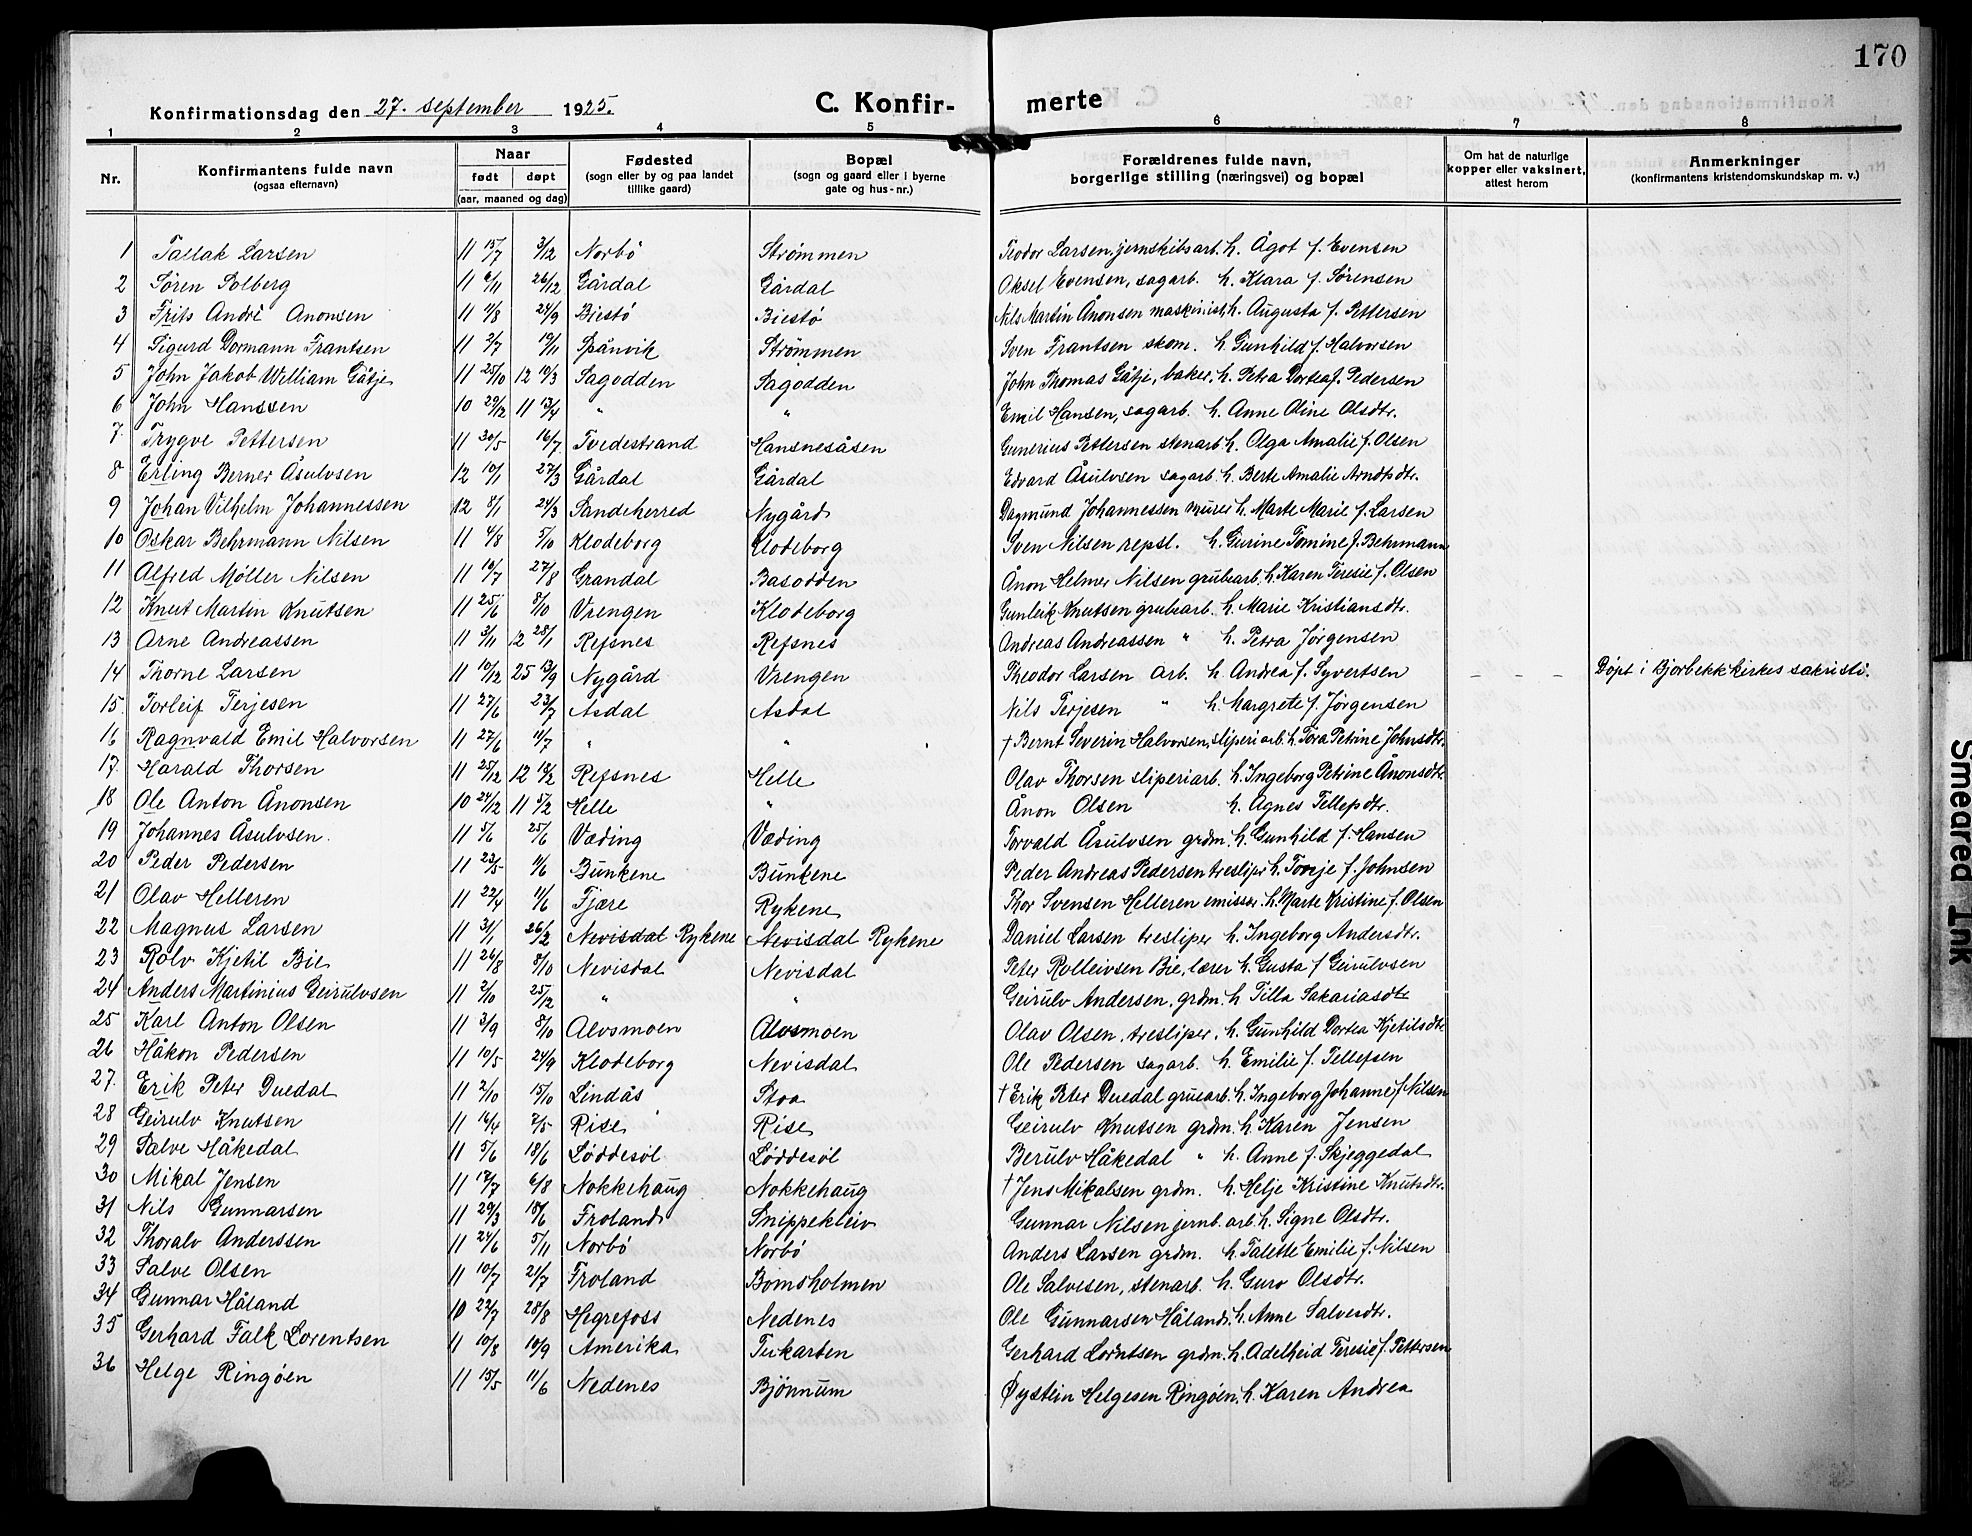 170
Konfirmationsdag den 27. september 1925.
C. Konfir- merte
1 2 3 4 5 6 7 8
Nr. Konfirmantens fulde navn (ogsaa efternavn) Naar født døpt (aar, maaned og dag) Fødested (sogn eller by og paa landet tillike gaard) Bopæl (sogn og gaard eller i byerne gate og hus-nr.) Forældrenes fulde navn, borgerlige stilling (næringsvei) og bopæl Om hat de naturlige kopper eller vaksinert, attest herom Anmerkninger (konfirmantens kristendomskundskap m. v.)
1 Tallak Larsen 11 15/7 3/12 Norbö Strømmen Teodor Larsen, jernskibsarb. h. Ågot f. Evensen
2 Søren Solberg 11 6/11 26/12 Gårdal Gårdal Aksel Evensen, sagarb. h. Klara f. Sørensen
3 Frits Andrê Anonsen 11 11/8 24/9 Biestø Biestø Nils Martin Ånonsen maskinist, h. Augusta f. Pettersen
4 Sigurd Dormann Frantsen 11 2/7 19/11 Spånvik Strømmen Sven Frantsen skom. h. Gunhild f. Halvorsen
5 John Jakob William Gätje 11 25/10 12 10/3 Sagodden Sagodden John Thomas Gätje, baker, h. Petra Dortea f. Pedersen
6 John Hanssen 10 29/12 11 13/4 " " Emil Hansen, sagarb. h. Anne Oline Olsdtr.
7. Trygve Pettersen 11 30/5 16/7 Tvedestrand Hansnesåsen Gunerius Pettersen stenarb h. Olga Amalie f. Olsen
8 Erling Berner Åsulvsen 12 10/1 27/3 Gårdal Gårdal Edvard Åsulvsen sagarb. h. Berte Amalie Arndtsdtr.
9 Johan Vilhelm Johannessen 12 8/1 24/3 Sandeherred Nygård Dagmund Johannessen murer h. Marte Marie f. Larsen
10 Oskar Behrmann Nilsen 11 4/8 5/10 Klodeborg Klodeborg Sven Nilsen repsl. h. Gurine Tomine f. Behrmann
11 Alfred Møller Nilsen 11 10/7 27/8 Grandal Basodden Ånon Helmer Nilsen grubearb. h. Karen Teresie f. Olsen
12 Knut Martin Knutsen 11 25/6 8/10 Vrengen Klodeborg Gunleik Knutsen grubearb. h. Marie Kristiansdtr.
13 Arne Andreassen 11 3/11 12 28/1 Refsnes Refsnes Andreas Andreassen " h. Petra Jørgensen
14 Thorne Larsen 11 10/12 25 13/9 Nygård Vrengen Theodor Larsen arb. h. Andrea f. Syvertsen - - - Døpt i Bjorbekk kirkes sakristi.
15. Torleif Terjesen 11 27/6 23/7 Asdal Asdal Nils Terjesen " h. Margrete f. Jørgensen
16 Ragnvald Emil Halvorsen 11 27/6 11/7 " " † Bernt Severin Halvorsen, sliperiarb. h. Tora Petrine Johnsdtr.
17. Harald Thorsen 11 25/12 12 18/2 Refsnes Helle Olav Thorsen sliperiarb. h. Ingeborg Petrine Ånonsdtr
18 Ole Anton Ånonsen 10 24/12 11 5/2 Helle " Ånon Olsen h. Agnes Tellefsdtr.
19 Johannes Åsulvsen. 11 5/6 25/6 Væding Væding Torvald Åsulvsen grdm. h. Gunhild f. Hansen
20 Peder Pedersen 11 23/5 11/6 Bunkene Bunkene Peder Andreas Pedersen tresliper h. Tovje f. Johnsen
21 Olav Helleren 11 22/4 11/6 Fjære Rykene Thor Svensen Helleren emissær. h. Marte Kristine f. Olsen
22 Magnus Larsen 11 31/1 26/2 Nevisdal Rykene Nevisdal Rykene Daniel Larsen tresliper h. Ingeborg Andersdtr.
23 Rolv Kjetil Bie 11 26/8 8/10 Nevisdal Nevisdal Peter Rolleivsen Bie, lærer h. Gusta f Geirulvsen
24 Anders Martinius Geirulvsen 11 2/10 25/12 " " Geirulv Andersen, grdm. h. Tilla Sakariasdtr
25 Karl Anton Olsen 11 3/9 8/10 Alvsmoen Alvsmoen Olav Olsen, tresliper, h. Gunhild Dortea Kjetilsdtr
26 Håkon Pedersen 11 10/5 24/9 Klodeborg Nevisdal Ole Pedersen sagarb. h. Emilie f. Tellefsen
27. Erik Peter Duedal 11 2/10 15/10 Lindås Stoa † Erik Peter Duedal gruearb. h. Ingeborg Johanne f. Nilsen
28 Geirulv Knutsen 11 16/4 7/5 Rise Rise Geirulv Knutsen grdm. h. Karen Jensen
29 Salve Håkedal 11 5/6 18/6 Løddesøl Løddesøl Berulv Håkedal " h. Anne f. Skjeggedal
30 Mikal Jensen 11 17/7 6/8 Nokkehaug Nokkehaug † Jens Mikalsen grdm. h. Helje Kristine Knutsdtr.
31 Nils Gunnarsen 11 29/3 18/6 Froland Snippekleiv Gunnar Nilsen jernb. arb. h. Signe Olsdtr.
32 Thoralv Anderssen 11 24/6 5/11 Norbö Norbö Anders Larsen grdm. h. Talette Emilie f. Nilsen
33 Salve Olsen 11 10/7 21/7 Froland Bomsholmen Ole Salvesen, stenarb. h. Guro Olsdtr.
34 Gunnar Håland 10 22/7 28/8 Hegrefoss Nedenes Ole Gunnarsen Håland, h. Anne Salvesdtr.
35 Gerhard Falk Lorentsen 11 10/8 10/9 Amerika Teikarten Gerhard Lorntsen grdm. h. Adelheid Teresie f. Pettersen
36 Helge Ringøen 11 15/5 11/6 Nedenes Bjönnum Øystein Helgesen Ringøen, h. Karen Andrea
Smeared Ink